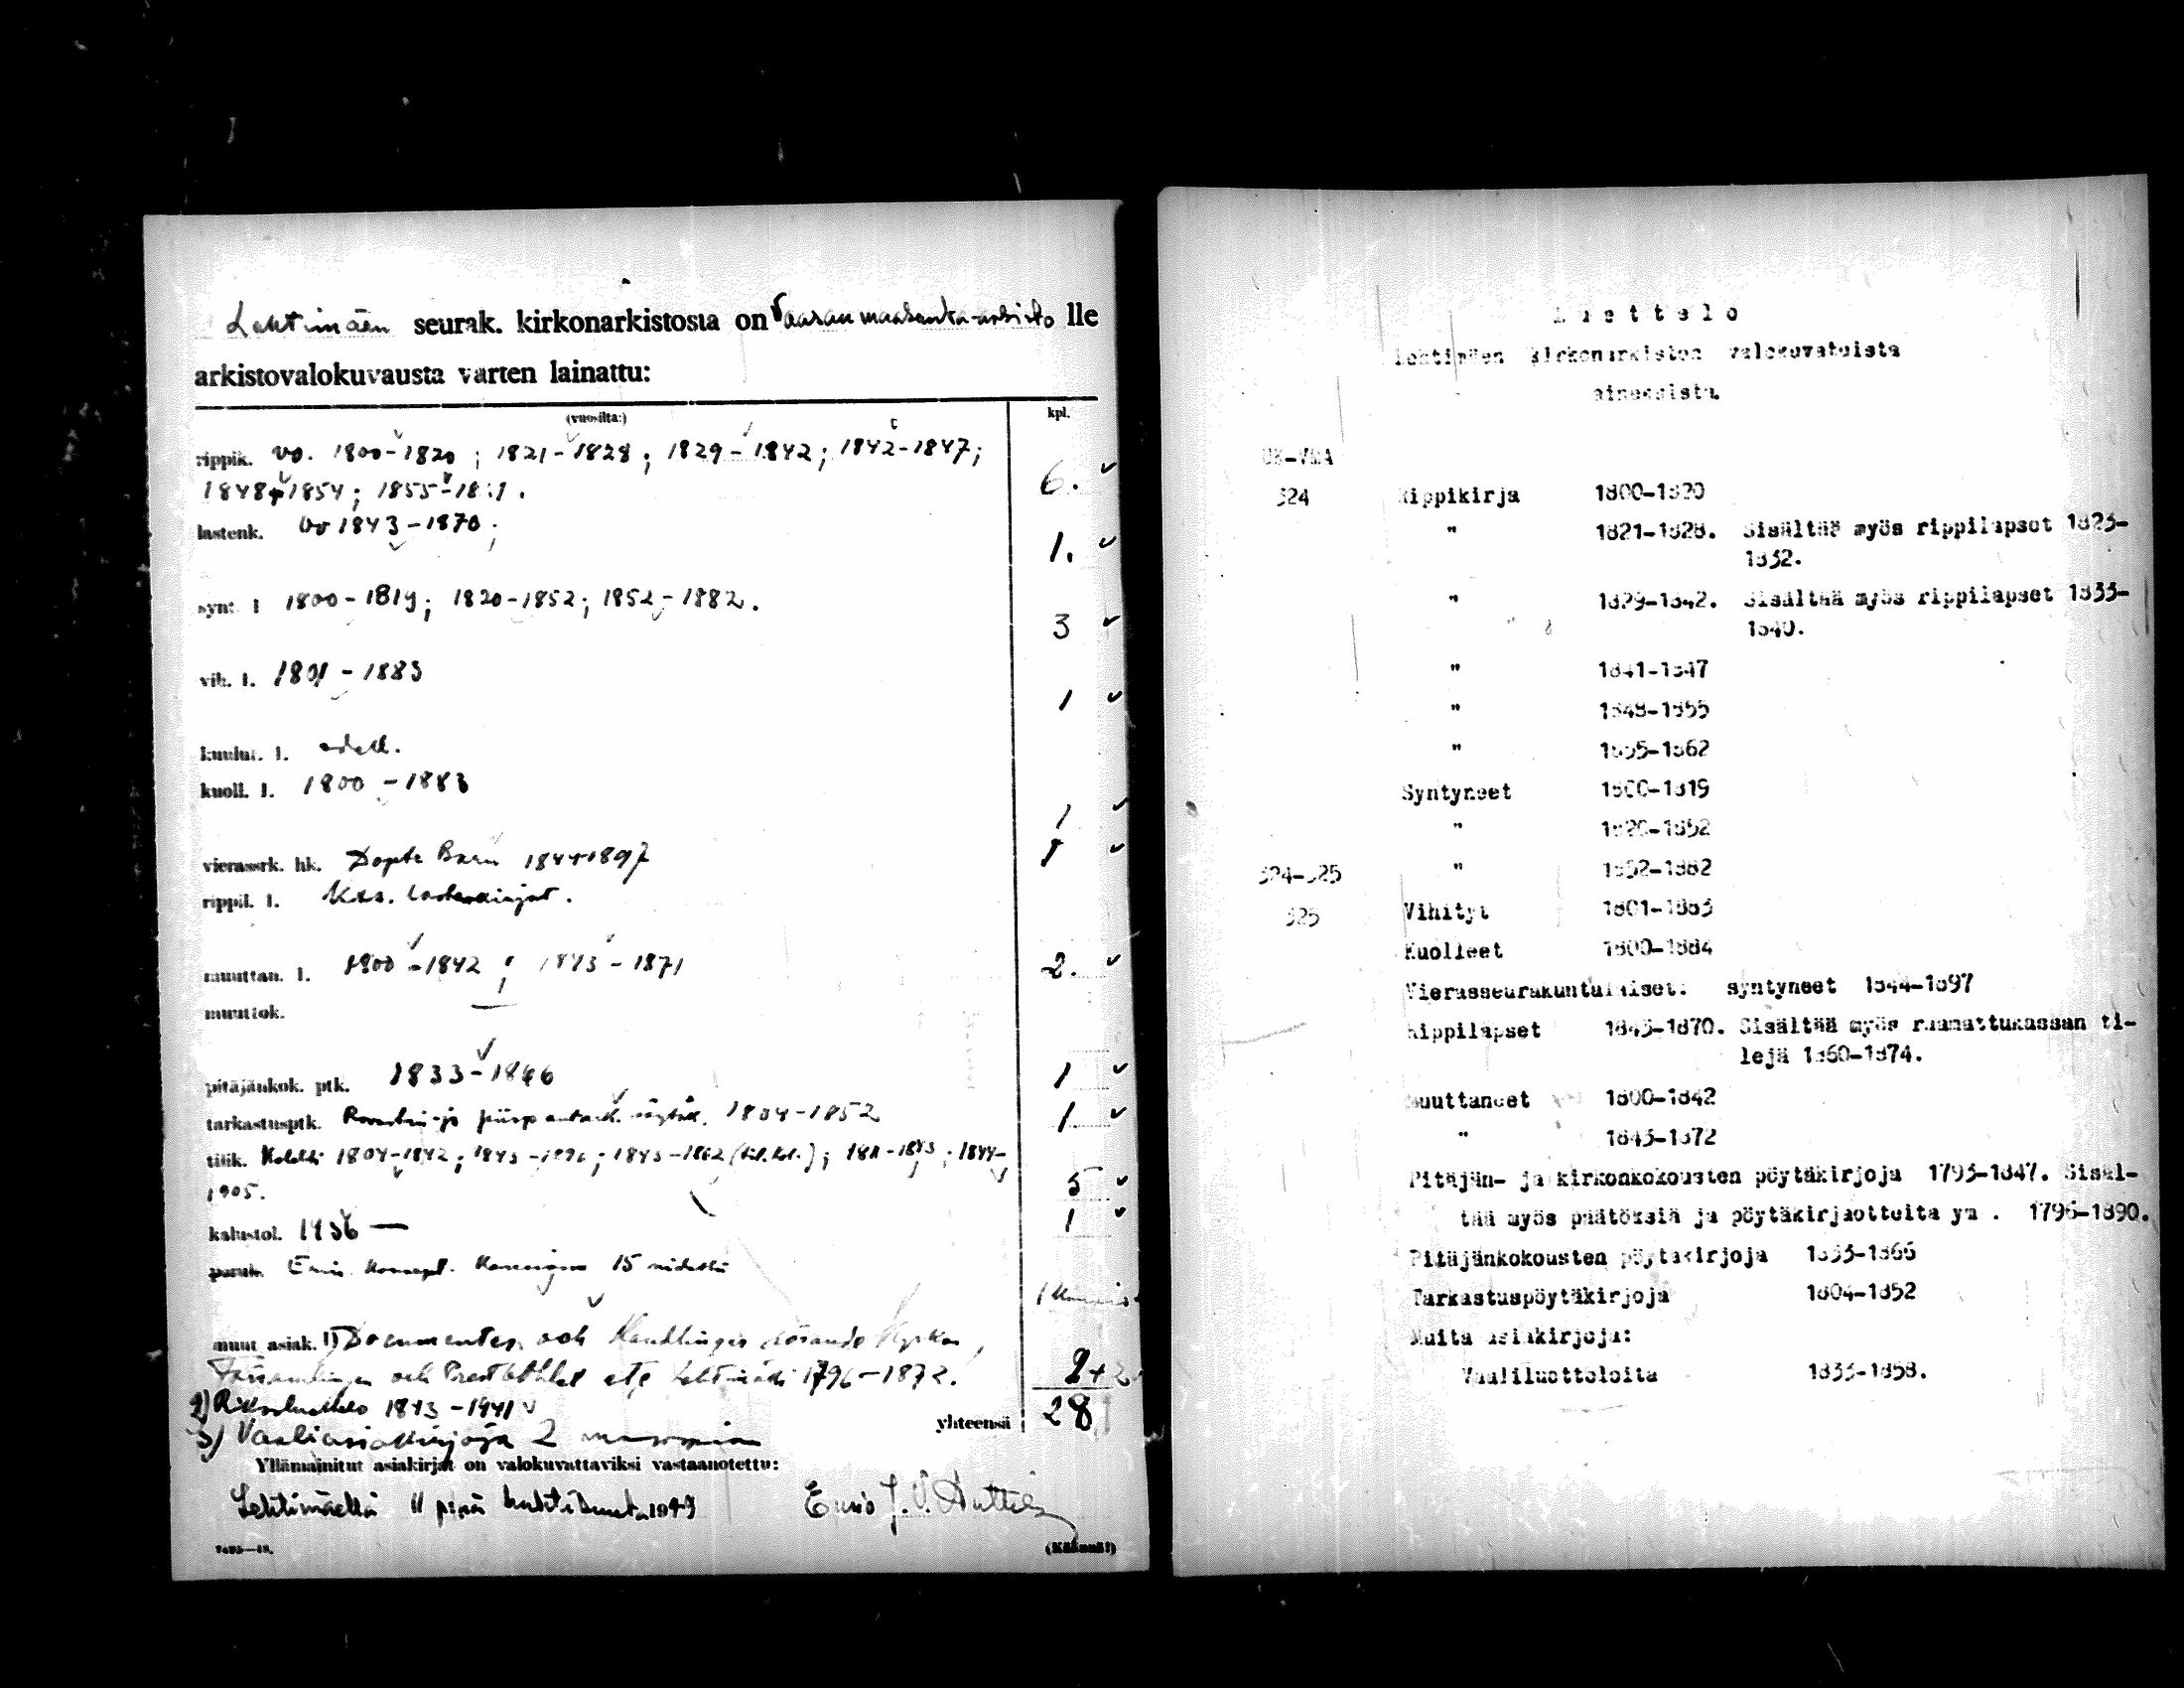 Lehtimäen seurak. kirkonarkistosta on Vaasan maakunta-arkisto lle
arkistovalokuvausta varten lainattu:
(vuosilta:) kpl.
rippik. vv. 1800-1820; 1821-1828; 1829-1842; 1842-1847;
1848-1854; 1855-18 1. 6.
lastenk. vv 1843-1870; 1.
synt. l 1800-1819; 1820-1852; 1852-1882. 3
vih. l. 1801-1883 1
kuulut. l. edell.
kuoll. l. 1800-1883 1
vierassrk. hk. Döpte Barn 1844-1897 1
rippil. l. Kts. lastenkirjat.
muuttan. l. 1800-1842; 1843-1871 2.
muuttok. —
pitäjänkok. ptk. 1833-1846 1
tarkastusptk. Rovastin- ja piisp 1804-1852 1
tilik. 1804-1842; 1843-1896; 1843-1862; 1844-
1905. 5
kalustol. 1936 — 1
15 nidettä
muut asiak. 1) Documenter och Handlingar rörande Kyrkan,
Församlingen och Lehtimäki 1796-1872. 2+2
2) Rikosluettelo 1893-1941
yhteensä 28
3) Vaaliasiakirjoja 2
Yllämainitut asiakirjat on valokuvattaviksi vastaanotettu:
Lehtimäellä 11 p:nä huhtikuuta 1949 Eino J. V. Anttila
(Käännä!)
Luettelo
Lehtimäen kirkonarkiston valokuvatuista
aineksista.
UK-VMA
324 Rippikirja 1800-1820
" 1821-1828. Sisältää myös rippilapset 1823-
1832.
" 1829-1842. Sisältää myös rippilapset 1833-
1840.
" 1841-1847
" 1848-1855
" 1855-1862
Syntyneet 1800-1819
" 1820-1852
324-325 " 1852-1882
325 Vihityt 1801-1883
Kuolleet 1800-1884
Vierasseurakuntalaiset: syntyneet 1844-1897
Rippilapset 1843-1870. Sisältää myös raamattukassan ti-
lejä 1860-1874.
Muuttaneet 1800-1842
" 1843-1872
Pitäjän- ja kirkonkokousten pöytäkirjoja 1793-1847. Sisäl-
tää myös päätöksiä ja pöytäkirjaotteita ym. 1796-1890.
Pitäjänkokousten pöytäkirjoja 1833-1866
Tarkastuspöytäkirjoja 1804-1852
Muita asiakirjoja:
Vaaliluetteloita 1833-1858.